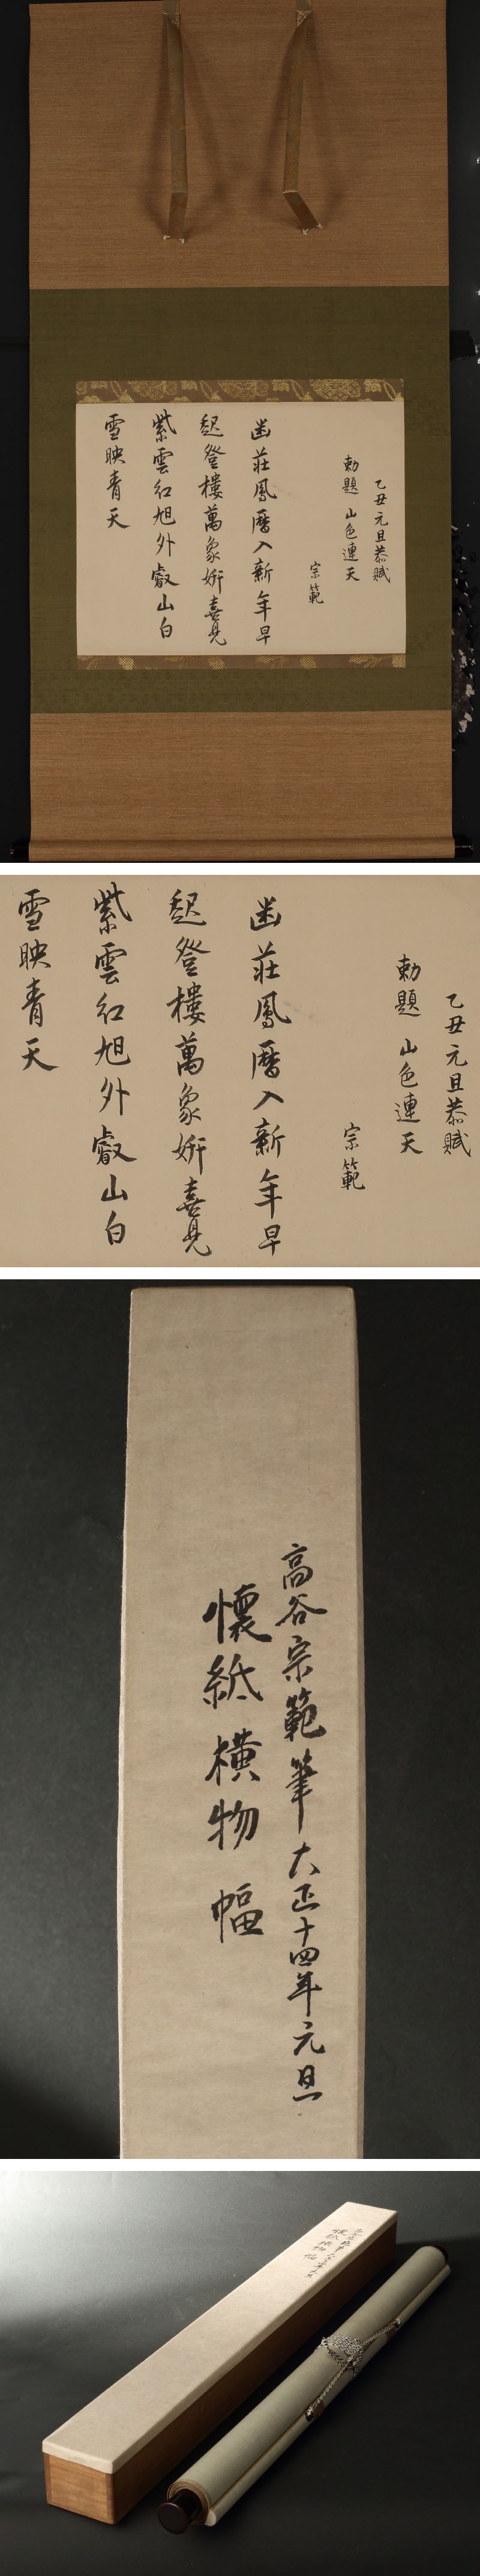 乙丑元旦恭賦
勅題 山色連天
宗範
幽莊鳳曆入新年早
起登樓萬象妍喜見
紫雲紅旭外叡山白
雪映青天
乙丑元旦恭賦
勅題 山色連天
宗範
幽莊鳳曆入新年早
起登樓萬象妍喜見
紫雲紅旭外叡山白
雪映青天
高谷宗範筆 大正十四年元旦
懷紙横物 幅